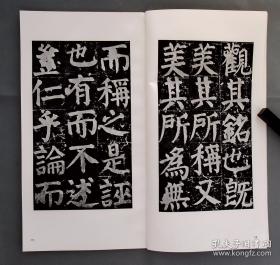 觀其銘也既
美其所稱又
美其所為無
而稱之是誣
也有而不述
豈仁乎論而